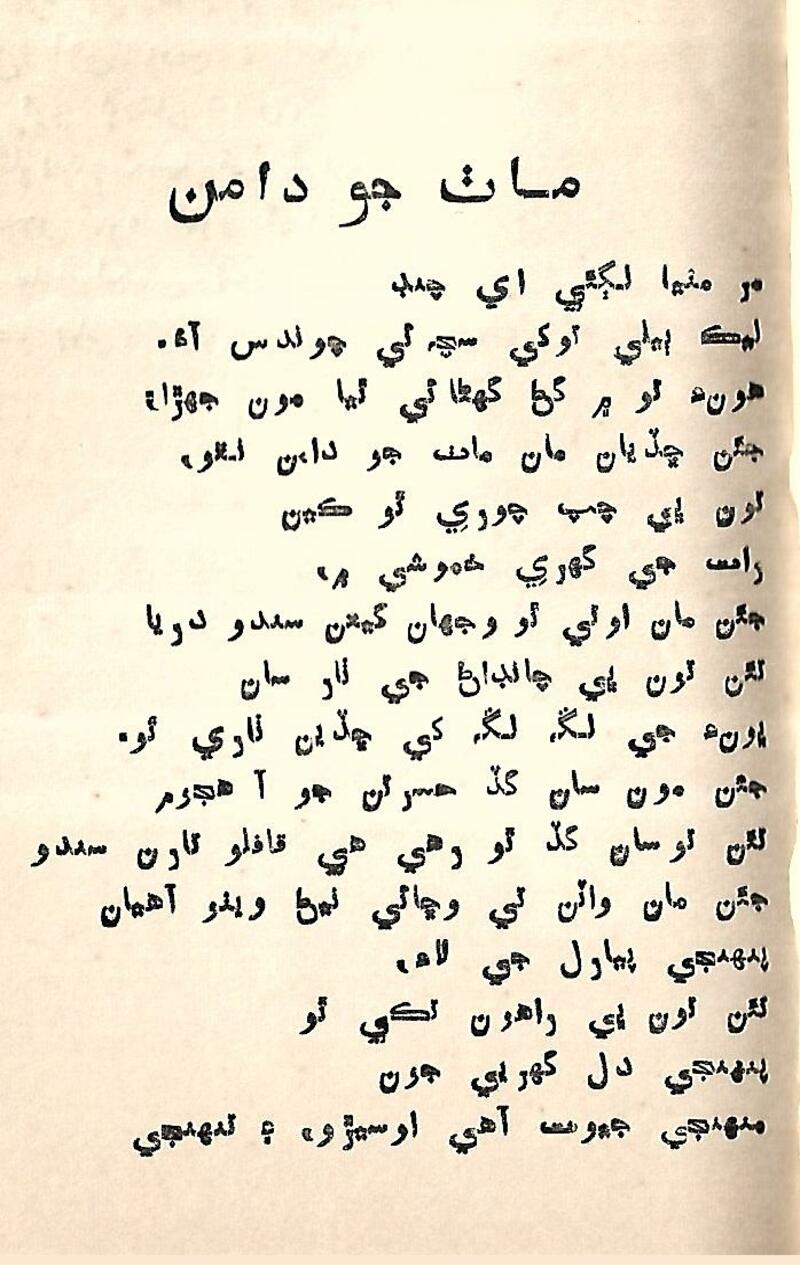 ماٺ جو دامن
مر مٺيا لڳئي اي چنڊ
ليڪ ٻيلي توکي سچ ئي چوندس آءٌ.
هونءَ تو ۾ کڻ گهٽائي ٿيا مون جهڙا؛
جئن ڇڏيان مان ماٺ جو دامن نٿو،
تون ٻي چپ چوري ٿو ڪين
رات جي گهري خموشي ۾،
جئن مان اوتي ٿو وجهان گيتن سندو دريا
تئن تون ٻي چانڊاڻ جي تار سان
ڀونءَ جي لڱ لڱ کي ڇڏين ٺاري ٿو.
جئن مون سان گڏ حسرتن جو آ هجوم
تئن تو سان گڏ ٿو رهي هي قافلو تارن سندو
جئن مان واٽن تي وڇائي نيڻ ويٺو آهيان
پنهنجي پيارل جي لاءِ،
تئن تون ٻي راهون تڪي ٿو
پنهنجي دل گهريي جون
منهنجي جيوت آهي اوسيڙو، ۽ تنهنجي